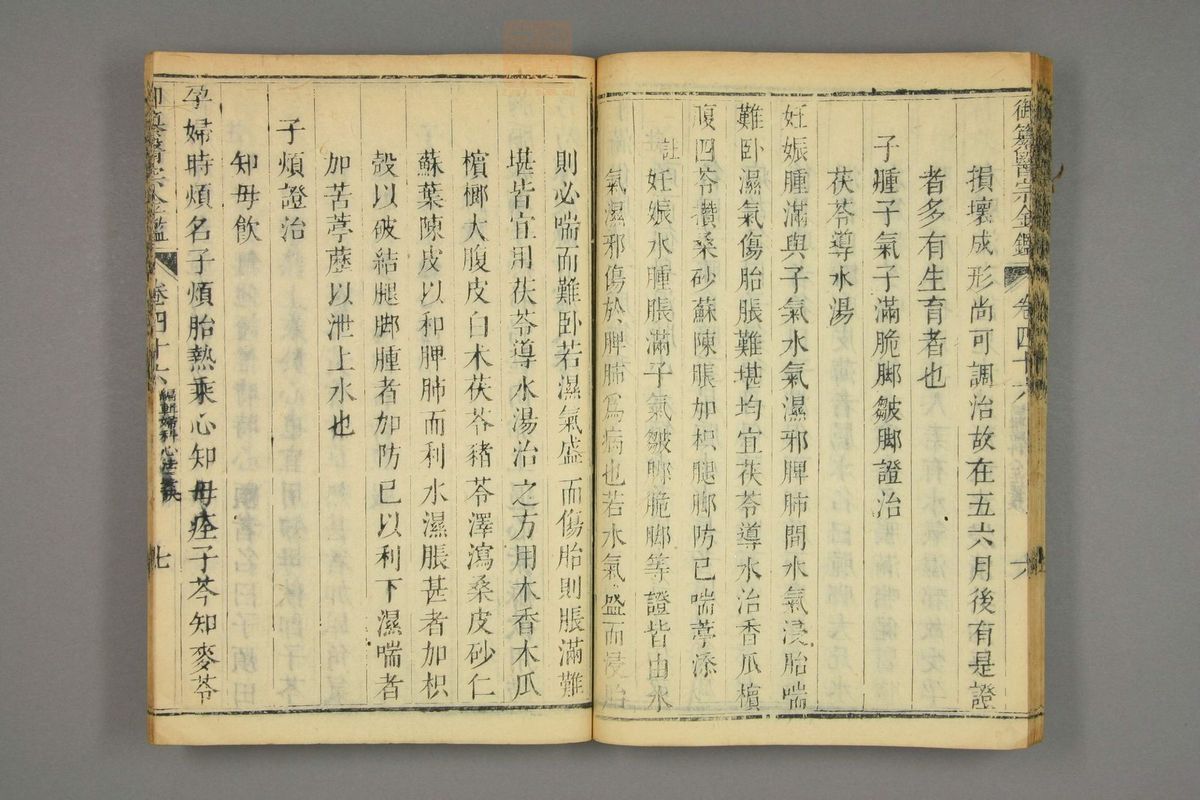 御纂醫宗金鑑 卷四十六 六
損壞成形尚可調治故在五六月後有是證
者多有生育者也
子腫子氣子滿脆脚皺脚證治
茯苓導水湯
妊娠腫滿與子氣水氣濕邪脾肺間水氣浸胎喘
難卧濕氣傷胎脹難堪均宜茯苓導水治香瓜檳
腹四苓攢桑砂蘇陳脹加枳腿脚防己喘葶添
註妊娠水腫脹滿子氣皺脚脆脚等證皆由水
氣濕邪傷於脾肺爲病也若水氣盛而浸胎
則必喘而難卧若濕氣盛而傷胎則脹滿難
堪皆宜用茯苓導水湯治之方用木香木瓜
檳榔大腹皮白木茯苓豬苓澤瀉桑皮砂仁
蘇葉陳皮以和脾肺而利水濕脹甚者加枳
殼以破結腿脚腫者加防已以利下濕喘者
加苦葶藶以泄上水也
子煩證治
知母飲
孕婦時煩名子煩胎熱乘心知母痊子芩知麥苓
御纂醫宗金鑑 卷四十六 編輯婦科心法要訣 七